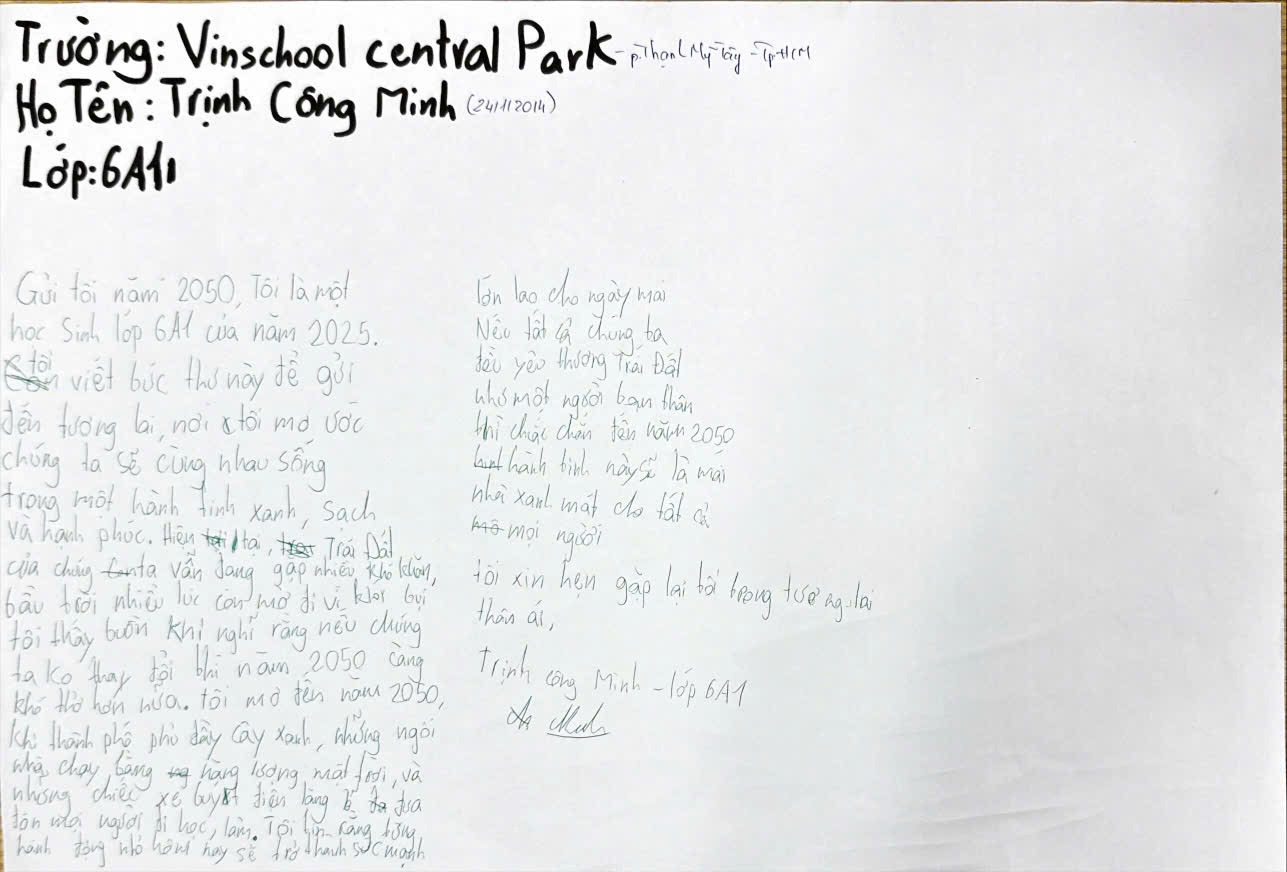 Trường: Vinschool central Park - p.Thạnh Mỹ Tây - Tp HCM
Họ Tên: Trịnh Công Minh (24/11/2014)
Lớp: 6A1
Gửi tôi năm 2050, Tôi là một
học Sinh lớp 6A1 của năm 2025.
tôi viết bức thư này để gửi
đến tương lai, nơi tôi mơ ước
chúng ta sẽ cùng nhau sống
trong một hành tinh xanh, sạch
và hạnh phúc. Hiện tại, Trái Đất
của chúng ta vẫn đang gặp nhiều khó khăn,
bầu trời nhiều lúc còn mờ đi vì khói bụi
tôi thấy buồn khi nghĩ rằng nếu chúng
ta ko thay đổi thì năm 2050 càng
khó thở hơn nữa. tôi mơ đến năm 2050,
khi thành phố phủ đầy cây xanh, những ngôi
nhà chạy bằng năng lượng mặt trời, và
những chiếc xe buýt điện lặng lẽ đưa
đón mọi người đi học, làm. Tôi tin rằng từng
hành động nhỏ hôm nay sẽ trở thành sức mạnh
lớn lao cho ngày mai
Nếu tất cả chúng ta
đều yêu thương Trái Đất
như một người bạn thân
thì chắc chắn đến năm 2050
hành tinh này sẽ là mái
nhà xanh mát cho tất cả
mọi người
tôi xin hẹn gặp lại tôi trong tương lai
thân ái,
Trịnh công Minh - lớp 6A1
Minh